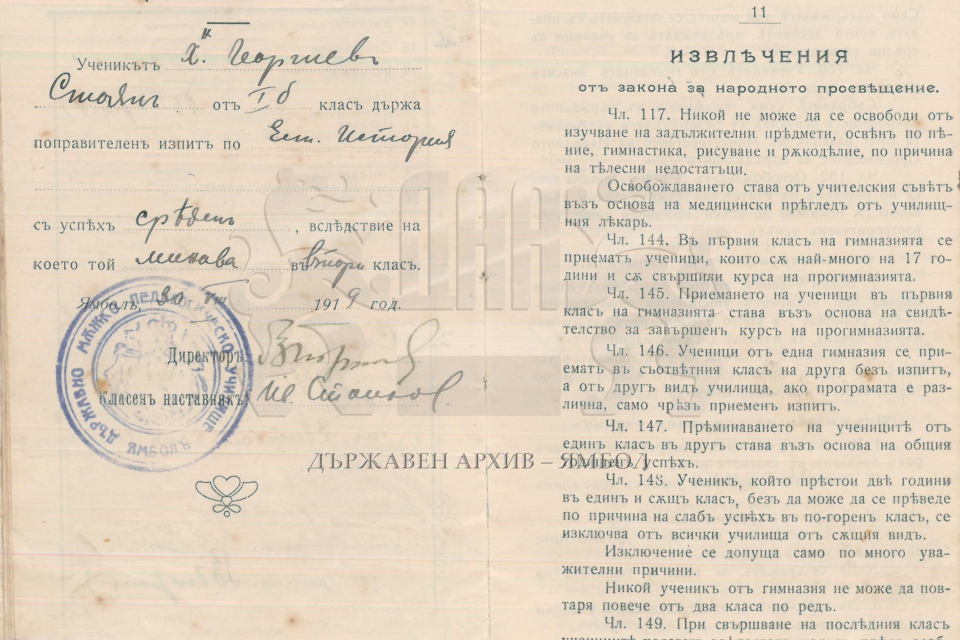 Ученикътъ х. Георгиевъ
Стоянъ отъ I б класъ държа
поправителенъ изпитъ по Ест. История
съ успѣхъ срѣденъ, вслѣдствие на
което той минава въ втори класъ.
Ямболъ, 30 VIII 1919 год.
Директоръ:
Класенъ наставникъ:
ДЪРЖАВНО МѪЖКО ПЕДАГОГИЧЕСКО УЧИЛИЩЕ
ЯМБОЛЪ
ДЪРЖАВЕН АРХИВ – ЯМБОЛ
ДАА
11
ИЗВЛѢЧЕНИЯ
отъ закона за народното просвѣщение.
Чл. 117. Никой не може да се освободи отъ
изучване на задължителни прѣдмети, освѣнъ по пѣ-
ние, гимнастика, рисуване и рѫкодѣлие, по причина
на тѣлесни недостатъци.
Освобождаването става отъ учителския съвѣтъ
възъ основа на медицински прѣгледъ отъ училищ-
ния лѣкарь.
Чл. 144. Въ първия класъ на гимназията се
приематъ ученици, които сѫ най-много на 17 го-
дини и сѫ свършили курса на прогимназията.
Чл. 145. Приемането на ученици въ първия
класъ на гимназията става възъ основа на свидѣ-
телство за завършенъ курсъ на прогимназията.
Чл. 146. Ученици отъ една гимназия се при-
ематъ въ съответния класъ на друга безъ изпитъ,
а отъ другъ видъ училища, ако програмата е раз-
лична, само чрѣзъ приеменъ изпитъ.
Чл. 147. Прѣминаването на учениците отъ
единъ класъ въ другъ става възъ основа на общия
годишенъ успѣхъ.
Чл. 148. Ученикъ, който прѣстои двѣ години
въ единъ и сѫщъ класъ, безъ да може да се прѣведе
по причина на слабъ успѣхъ въ по-горенъ класъ, се
изключва отъ всички училища отъ сѫщия видъ.
Изключение се допуща само по много ува-
жителни причини.
Никой ученикъ отъ гимназия не може да пов-
таря повече отъ два класа по редъ.
Чл. 149. При свършване на последния класъ